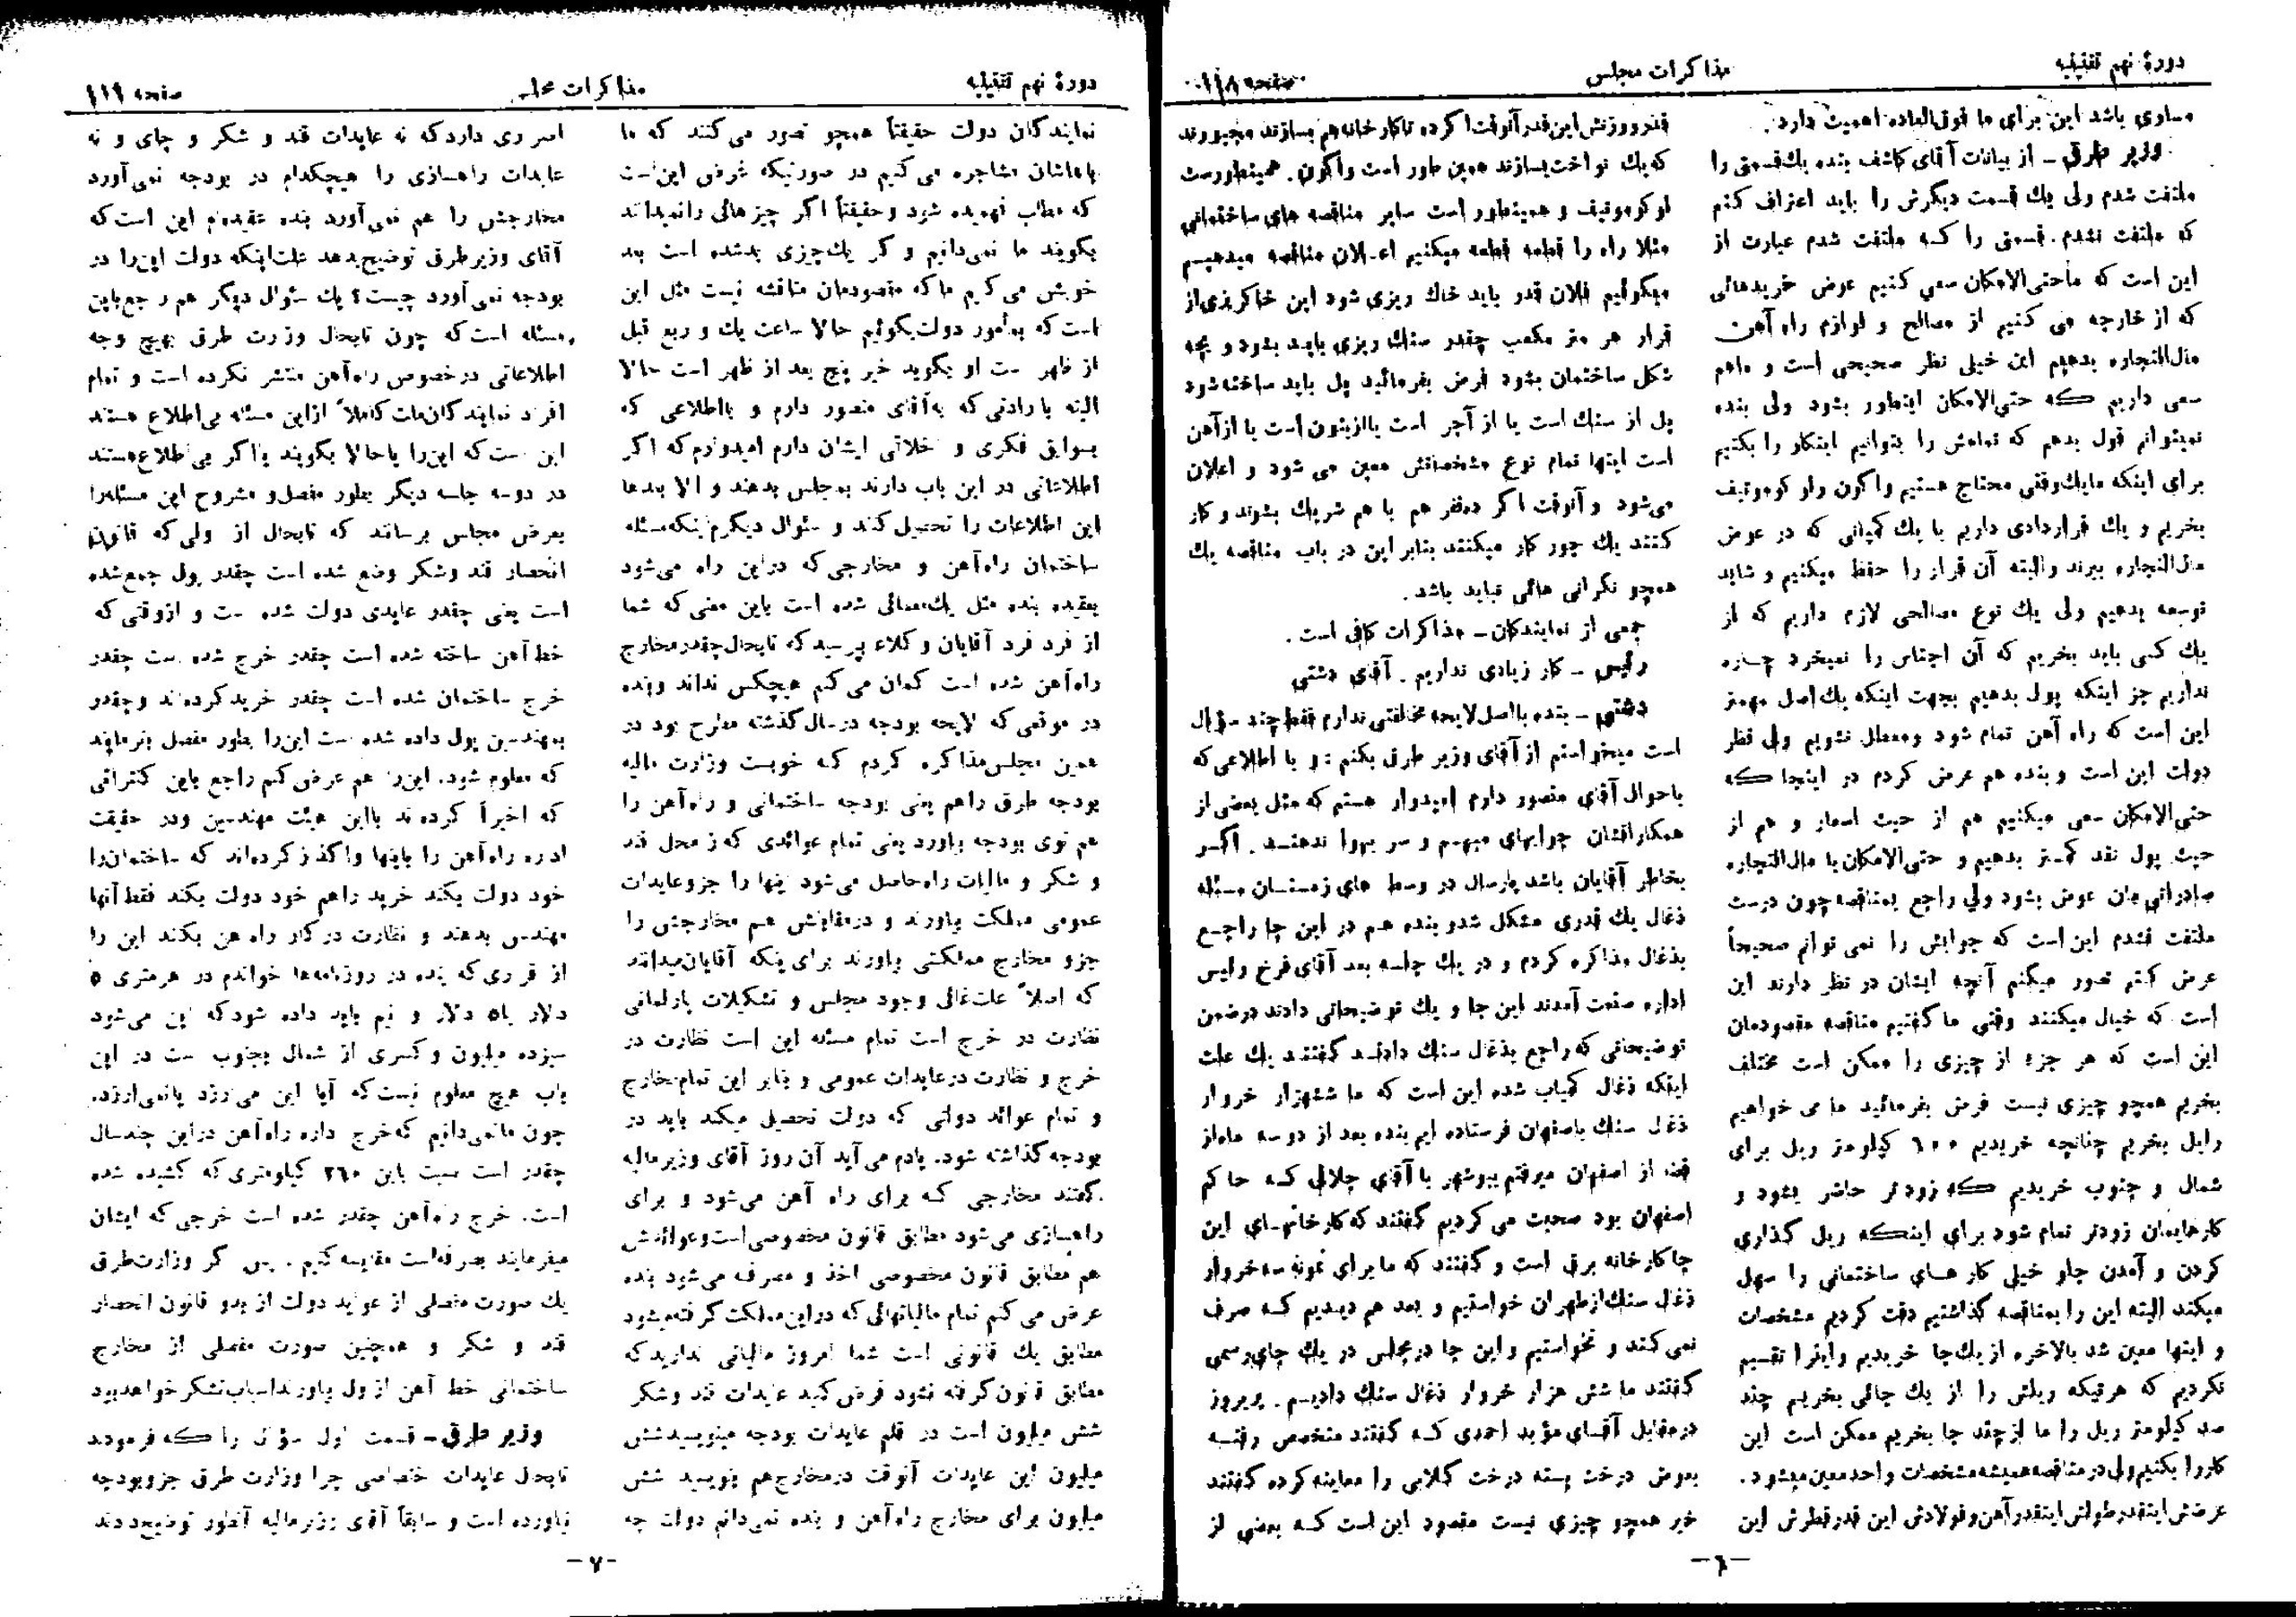 دورهٔ نهم تقنینیه
مذاکرات مجلس
صفحه ۱۱۸
مساوی باشد این برای ما فوق‌العاده اهمیت دارد.
وزیر طرق ـ از بیانات آقای کاشف بنده یك‌قسمتی را
ملتفت شدم ولی یك قسمت دیگرش را باید اعتراف کنم
که ملتفت نشدم. قسمتی را کـه ملتفت شدم عبارت از
این است که ماحتی‌الامکان سعی کنیم عوض خریدهائی
که از خارجه می کنیم از مصالح و لوازم راه آهن
مال‌التجاره بدهیم این خیلی نظر صحیحی است و ماهم
سعی داریم که حتی‌الامکان اینطور بشود ولی بنده
نمیتوانم قول بدهم که تمامش را بتوانیم اینکار را بکنیم
برای اینکه مایك‌وقتی محتاج هستیم واگون ولو کوموتیف
بخریم و یك قراردادی داریم با یك کمپانی که در عوض
مال‌التجاره ببرند والبته آن قرار را حفظ میکنیم و شاید
توسعه بدهیم ولی یك نوع مصالحی لازم داریم که از
یك کسی باید بخریم که آن اجناس را نمیخرد چـاره
نداریم جز اینکه پول بدهیم بجهت اینکه یك‌اصل مهمتر
این است که راه آهن تمام شود ومعطل نشویم ولی نظر
دولت این است و بنده هم عرض کردم در اینجا که
حتی‌الامکان سعی میکنیم هم از حیث اسعار و هم از
حیث پول نقد کمـتر بدهیم و حتی‌الامکان‌با مال‌التجاره
صادراتی‌مان عوض بشود ولی راجع بمناقصه چون درست
ملتفت نشدم این است که جوابش را نمی توانم صحیحاً
عرض کنم تصور میکنم آنچه ایشان در نظر دارند این
است که خیال میکنند وقتی ما گفتیم مناقصه مقصودمان
این است که هر جزء از چیزی را ممکن است مختلف
بخریم همچو چیزی نیست فرض بفرمائید ما می خواهیم
رایل بخریم چنانچه خریدیم ۶۰۰ کیلومتر ریل برای
شمال و جنوب خریدیم که زودتر حاضر بشود و
کارهایمان زودتر تمام شود برای اینکه ریل گذاری
کردن و آمدن جلو خیلی کار هـای ساختمانی را سهل
میکند البته این را بمناقصه گذاشتیم دقت کردیم مشخصات
و اینها معین شد بالاخره از یك‌جا خریدیم و اینرا تقسیم
نکردیم که هرتیکه ریلش را از یك جائی بخریـم چند
صد کیلومتر ریل را ما از چند جا بخریم ممکن است این
کاررا بکنیم‌ولی‌درمناقصه‌همیشه‌مشخصات واحدمعین‌میشود.
عرضش اینقدرطولش اینقدرآهن‌وفولادش این قدرقطرش این
قدرووزنش این‌قدرآنوقت‌اگرده تاکارخانه‌هم بسازند مجبورند
که‌یك نواخت‌بسازند همین طور است واگون. همینطورست
لوکوموتیف و همینطور است سایر مناقصه های ساختمانی
مثلا راه را قطعه قطعه میکنیم اعـلان مناقصه میدهیـم
میگوئیم فلان قدر باید خاك ریزی شود این خاکریزی‌از
قرار هر متر مکعب چقدر سنك ریزی بایـد بشود و بچه
شکل ساختمان بشود فرض بفرمائید پل باید ساخته‌شود
پل از سنك است یا از آجر است یاازبتون است یا ازآهن
است اینها تمام نوع مشخصاتش معین می شود و اعلان
می‌شود و آنوقت اگر ده‌نفر هم با هم شریك بشوند و کار
کنند یك جور کار میکنند بنابر این در باب مناقصه یك
همچو نگرانی هائی نباید باشد.
جمعی از نمایندگان ـ مذاکرات کافی است.
رئیس ـ کار زیادی نداریم. آقای دشتی
دشتی ـ بنده بااصل‌لایحه مخالفتی‌ندارم فقط‌چند سؤال
است میخواستم از آقای وزیر طرق بکنم و با اطلاعی‌که
باحوال آقای منصور دارم امیدوار هستم که مثل بعضی‌از
همکارانشان جوابهای مبهـم و سر بهوا ندهنـد. اگـر
بخاطر آقایان باشد پارسال در وسط های زمستـان مسئله
ذغال یك قدری مشکل شدو بنده هـم در این جا راجـع
بذغال مذاکره کردم و در یك جلسه بعد آقای فرخ رئیس
اداره صنعت آمدند این جا و یك توضیحاتی دادند درضمن
توضیحاتی که راجع بذغال سنك دادنـد گفتنـد یك علت
اینکه ذغال کمیاب شده این است که ما ششهزار خروار
ذغال سنك باصفهان فرستاده ایم بنده بعد از دو سه ماه‌از
از اصفهان میرفتم ببوشهر با آقای جلالی کـه حاکم
اصفهان بود صحبت می کردیم گفتند که‌کارخانه‌هـای این
جا کارخانه برقی است و گفتند که ما برای نمونه سه‌خروار
ذغال سنك‌ازطهران خواستیم و بعد هم دیـدیم کـه صرف
نمی کند و نخواستیم و این جا درمجلس در یك جای‌رسمی
گفتند ما شش هزار خروار ذغال سنك دادیـم. پریروز
درمقابل آقـای مؤید احمدی کـه گفتند متخصص رفتـه
بعوض درخت پسته درخت گلابی را معاینه کرده گفتند
خیر همچو چیزی نیست مقصود این است کـه بعضی از
ـ ۶ ـ
دورهٔ نهم تقنینیه
مذاکرات مجلس
صفحه ۱۱۹
نمایندگان دولت حقیقتاً همچو تصور می کنند که ما
باهاشان مشاجره می کنیم در صورتیکه غرض این‌است
که مطلب فهمیده شود و حقیقتاً اگر چیز هائی را نمیدانند
بگویند ما نمی‌دانیم و گر یك‌چیزی بدشده است بعد
خوبش می کنیم ماکه مقصودمان مناقشه نیست مثل این
است که بمأمور دولت‌بگوئیم حالا ساعت یك و ربع قبل
از ظهر است او بگوید خیر پنج بعد از ظهر است حالا
البته با رادتی که به‌آقای منصور دارم و بااطلاعی که
بسوابق فکری و اخلاقی ایشان دارم امیدوارم که اگر
اطلاعاتی در این باب دارند بمجلس بدهند و الا بعدها
این اطلاعات را تحصیل کنند و سئوال دیگرم اینکه‌مسئله
ساختمان راه‌آهن و مخارجی که دراین راه می‌شود
بعقیده بنده مثل یك‌معمائی شده است باین معنی که شما
از فرد فرد آقایان وکلاء بپرسید که تابحال چقدرمخارج
راه‌آهن شده است گمان می کنم هیچکس نداند وبنده
در موقعی که لایحه بودجه درسال گذشته مطرح بود در
همین مجلس‌مذاکره کردم کـه خوبست وزارت مالیه
بودجه طرق راهم یعنی بودجه ساختمانی و راه‌آهن را
هم توی بودجه بیاورد یعنی تمام عوائدی که از محل قند
و شکر و مالیات راه‌حاصل می‌شود اینها را جزوعایدات
عمومی مملکت بیاورند و درمقابلش هـم مخارجش را
جزو مخارج مملکتی بیاورند برای اینکه آقایان‌میدانند
که اصلاً علت‌غائی وجود مجلس و تشکیلات پارلمانی
نظارت در خرج است تمام مسئله این است نظارت در
خرج و نظارت درعایدات عمومی و بنابر این تمام‌مخارج
و تمام عوائد دولتی که دولت تحصیل میکند باید در
بودجه گذاشته شود. یادم می‌آید آن روز آقای وزیرمالیه
گفتند مخارجی کـه برای راه آهن می‌شود و برای
راهسازی می‌شود مطابق قانون مخصوصی‌است‌وعوائدش
هم مطابق قانون مخصوصی اخذ و مصرف می‌شود بنده
عرض می کنم تمام مالیاتهائی که دراین‌مملکت گرفته‌میشود
مطابق یك قانونی است شما امروز مالیاتی ندارید که
مطابق قانون گرفته نشود فرض کنید عایدات قند وشکر
شش میلیون است در قلم عایدات بودجه مینویسیدشش
میلیون این عایدات آنوقت درمخارج هم بنویسید شش
میلیون برای مخارج راه‌آهن و بنده نمی‌دانم دولت چه
اصراری دارد که نه عایدات قند و شکر و چای و نه
عایدات راهسازی را هیچکدام در بودجه نمی آورد
مخارجش را هم نمی‌آورد بنده عقیده‌ام این است که
آقای وزیرطرق توضیح‌بدهد علت‌اینکه دولت این‌را در
بودجه نمی‌آورد چیست؟ یك سئوال دیگر هم راجع‌باین
مسئله است که چون تابحال وزارت طرق بهیچ وجه
اطلاعاتی درخصوص راه‌آهن منتشر نکرده است و تمام
افراد نمایندگان‌ملت کاملاً ازاین مسئله بی‌اطلاع هستند
این است که این‌را یاحالا بگویند یا اگر بی‌اطلاع‌هستند
در دوسه جلسه دیگر بطور مفصل‌و مشروح این مسئله‌را
بعرض مجلس برسانند که تابحال از اولی که قانون
انحصار قند وشکر وضع شده است چقدر پول جمع‌شده
است یعنی چقدر عایدی دولت شده است و ازوقتی که
خط‌آهن ساخته شده است چقدر خرج شده است چقدر
خرج ساختمان شده است چقدر خرید کرده‌اند وچقدر
بمهندسین پول داده شده است این‌را بطور مفصل بفرمایند
که معلوم شود. این‌را هم عرض کنم راجع باین کنتراتی
که اخیراً کرده‌اند بااین هیئت مهندسین ودر حقیقت
اداره راه‌آهن را باینها واگذار کرده‌اند که ساختمان‌را
خود دولت بکند خرید راهم خود دولت بکند فقط آنها
مهندس بدهند و نظارت درکار راه آهن بکند این را
از قراری که بنده در روزنامه‌ها خواندم در هرمتری ۵
دلار یا۵ دلار و نیم باید داده شود که این می‌شود
سیزده میلیون و کسری از شمال بجنوب است در این
باب هیچ معلوم نیست که آیا این می‌ارزد یانمی‌ارزد،
چون مانمی‌دانیم که‌خرج اداره راه‌آهن دراین چندسال
چقدر است نسبت باین ۲۶۰ کیلومتری که کشیده شده
است. خرج راه‌آهن چقدر شده است خرجی که ایشان
میفرمایند بصرفه‌است مقایسه کنیم. پس اگر وزارت‌طرق
یك صورت مفصلی از عواید دولت از بدو قانون انحصار
قند و شکر و همچنین صورت مفصلی از مخارج
ساختمانی خط آهن ازاول بیاورند اسباب‌تشکر خواهدبود
وزیر طرق ـ قسمت اول سؤال را که فرمودند
تابحال عایدات اختصاصی چرا وزارت طرق جزوبودجه
نیاورده است و سابقاً آقای وزیرمالیه آنطور توضیح‌دادند
ـ ۷ ـ